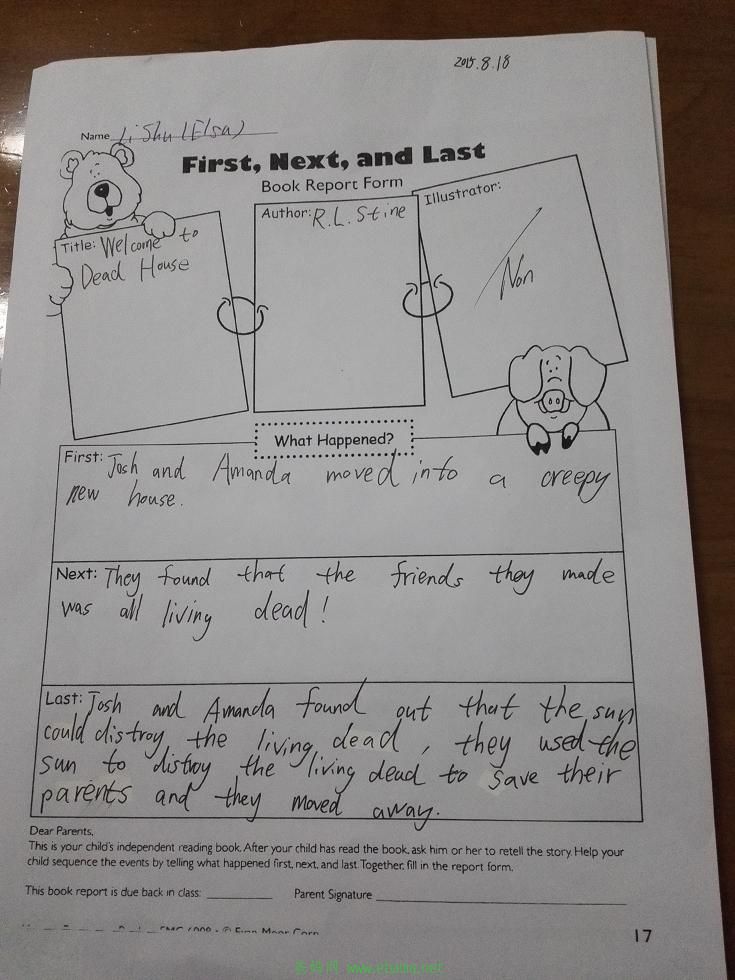 2015.8.18
Name Li Shu (Elsa)
First, Next, and Last
Book Report Form
Title: Welcome to
Dead House
Author: R.L. Stine
Illustrator:
Non
What Happened?
First: Josh and Amanda moved into a creepy
new house.
Next: They found that the friends they made
was all living dead!
Last: Josh and Amanda found out that the sun
could distroy the living dead, they used the
sun to distroy the living dead to save their
parents and they moved away.
Dear Parents,
This is your child's independent reading book. After your child has read the book, ask him or her to retell the story. Help your
child sequence the events by telling what happened first, next, and last. Together, fill in the report form.
This book report is due back in class: Parent Signature
17